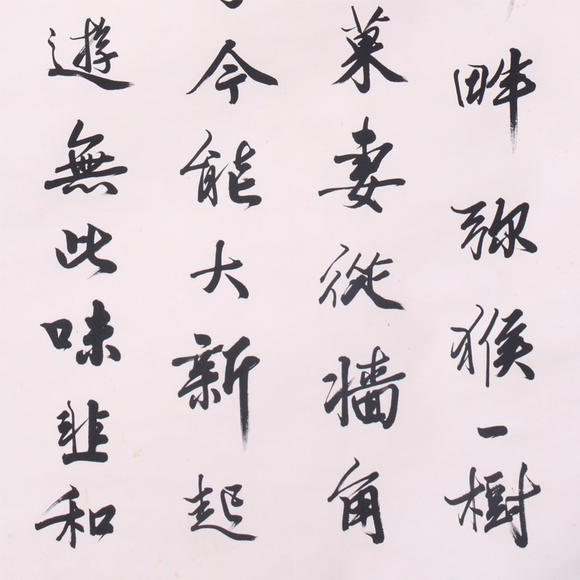 畔弥猴一樹
菓妻從墻角
今能大新起
遊無此味韭和